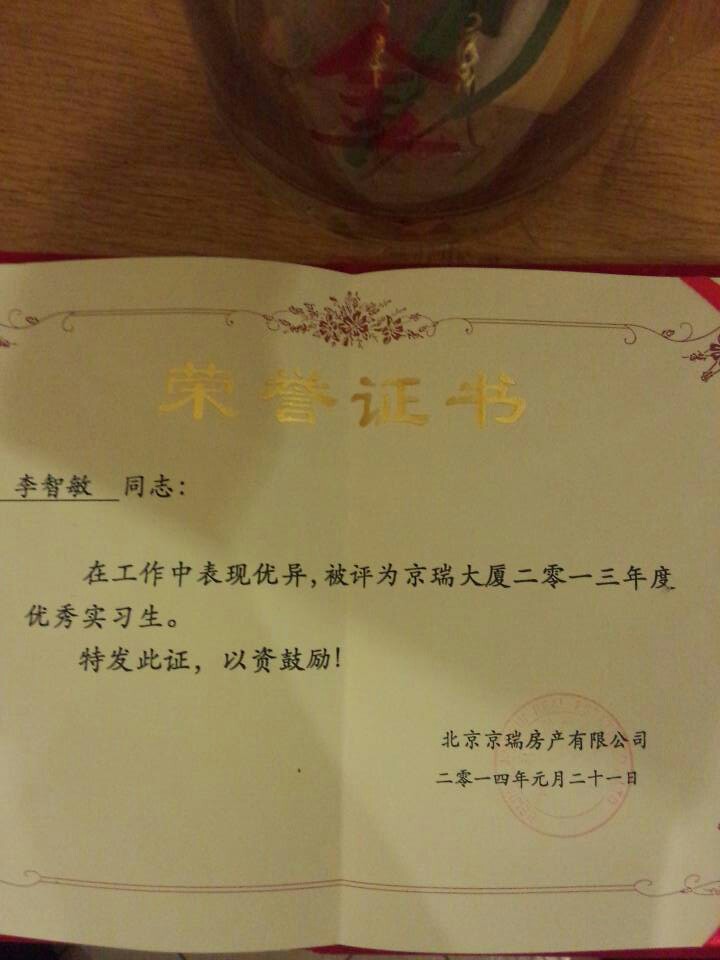 荣誉证书
李智敏 同志：
在工作中表现优异，被评为京瑞大厦二零一三年度
优秀实习生。
特发此证，以资鼓励！
北京京瑞房产有限公司
二零一四年元月二十一日